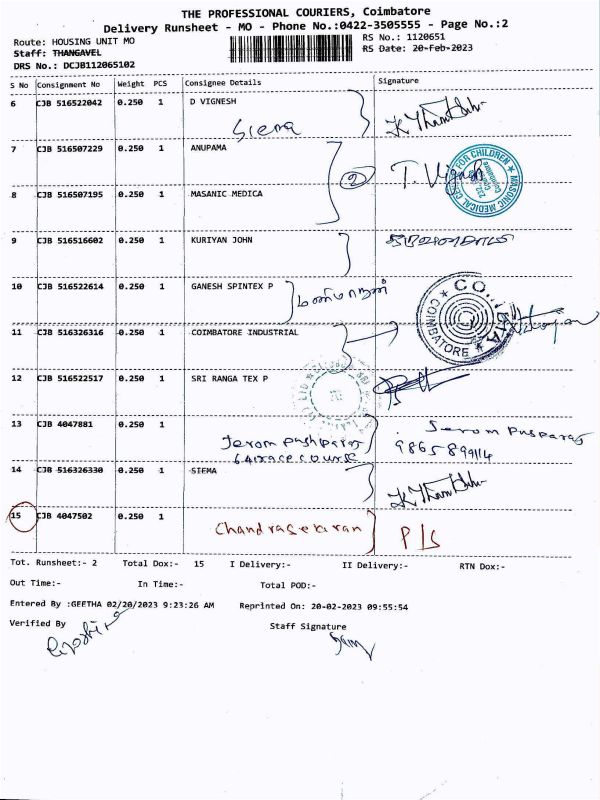 THE PROFESSIONAL COURIERS, Coimbatore
Delivery Runsheet - MO - Phone No.:0422-3505555 - Page No.:2
Route: HOUSING UNIT MO
Staff: THANGAVEL
DRS No.: DCJB112065102
RS No.: 1120651
RS Date: 20-Feb-2023
S No Consignment No Weight PCS Consignee Details Signature
6 CJB 516522042 0.250 1 D VIGNESH
Siema
7 CJB 516507229 0.250 1 ANUPAMA
2 T. Vignesh
8 CJB 516507195 0.250 1 MASANIC MEDICA
9 CJB 516516602 0.250 1 KURIYAN JOHN
10 CJB 516522614 0.250 1 GANESH SPINTEX P
11 CJB 516326316 0.250 1 COIMBATORE INDUSTRIAL
COIMBATORE
12 CJB 516522517 0.250 1 SRI RANGA TEX P
13 CJB 4047881 0.250 1
Jerom Pushparaj Jerom Pusparaj
64 race course
14 CJB 516326330 0.250 1 SIEMA
15 CJB 4047502 0.250 1 Chandrasekaran P/S
Tot. Runsheet:- 2 Total Dox:- 15 I Delivery:- II Delivery:- RTN Dox:-
Out Time:- In Time:- Total POD:-
Entered By :GEETHA 02/20/2023 9:23:26 AM Reprinted On: 20-02-2023 09:55:54
Verified By Staff Signature